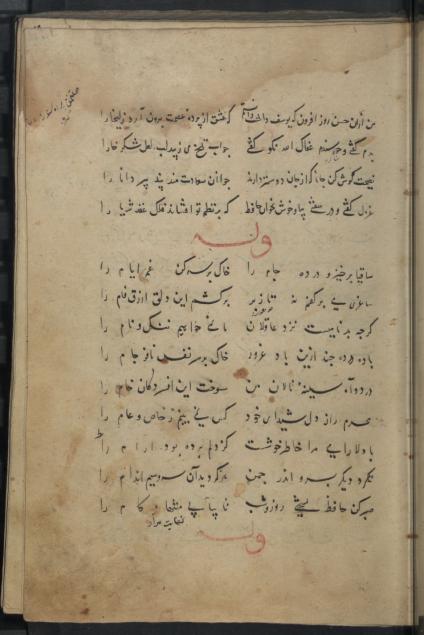 من ازان حسن روز افزون که یوسف داشت دانستم که عشق از پرده عصمت برون آرد زلیخا را
بدم گفتی و خرسندم عفاک الله نکو گفتی جواب تلخ می زیبد لب لعل شکر خارا
نصیحت گوش کن جانا که از جان دوستر دارند جوانان سعادت مند پند پیر دانا را
غزل گفتی و در سفتی بیا و خوش بخوان حافظ که بر نظم تو افشاند فلک عقد ثریا را
وله
ساقیا برخیز و درده جام را خاک بر سر کن غم ایام را
ساغر می بر کفم نه تا ز بر برکشم این دلق ازرق فام را
گرچه بدنامیست نزد عاقلان ما نمی خواهیم ننگ و نام را
باده درده چند ازین باد غرور خاک بر سر نفس نافرجام را
دود آه سینهٔ نالان من سوخت این افسردگان خام را
محرم راز دل شیدای خود کس نمی بینم ز خاص و عام را
با دلارامی مرا خاطر خوشست کز دلم برده بود آرام را
ننگرد دیگر بسرو اندر چمن هر که دید آن سرو سیم اندام را
صبر کن حافظ بسختی روز و شب تا بیابی منتهای کام را
وله